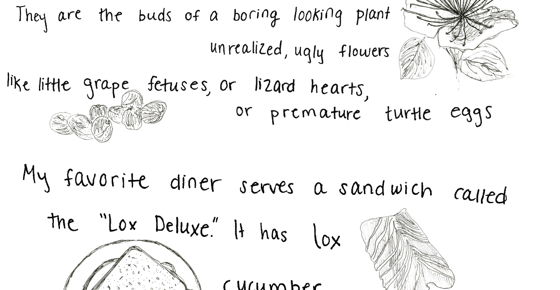 They are the buds of a boring looking plant
unrealized, ugly flowers
like little grape fetuses, or lizard hearts,
or premature turtle eggs
My favorite diner serves a sandwich called
the "Lox Deluxe." It has lox
cucumber